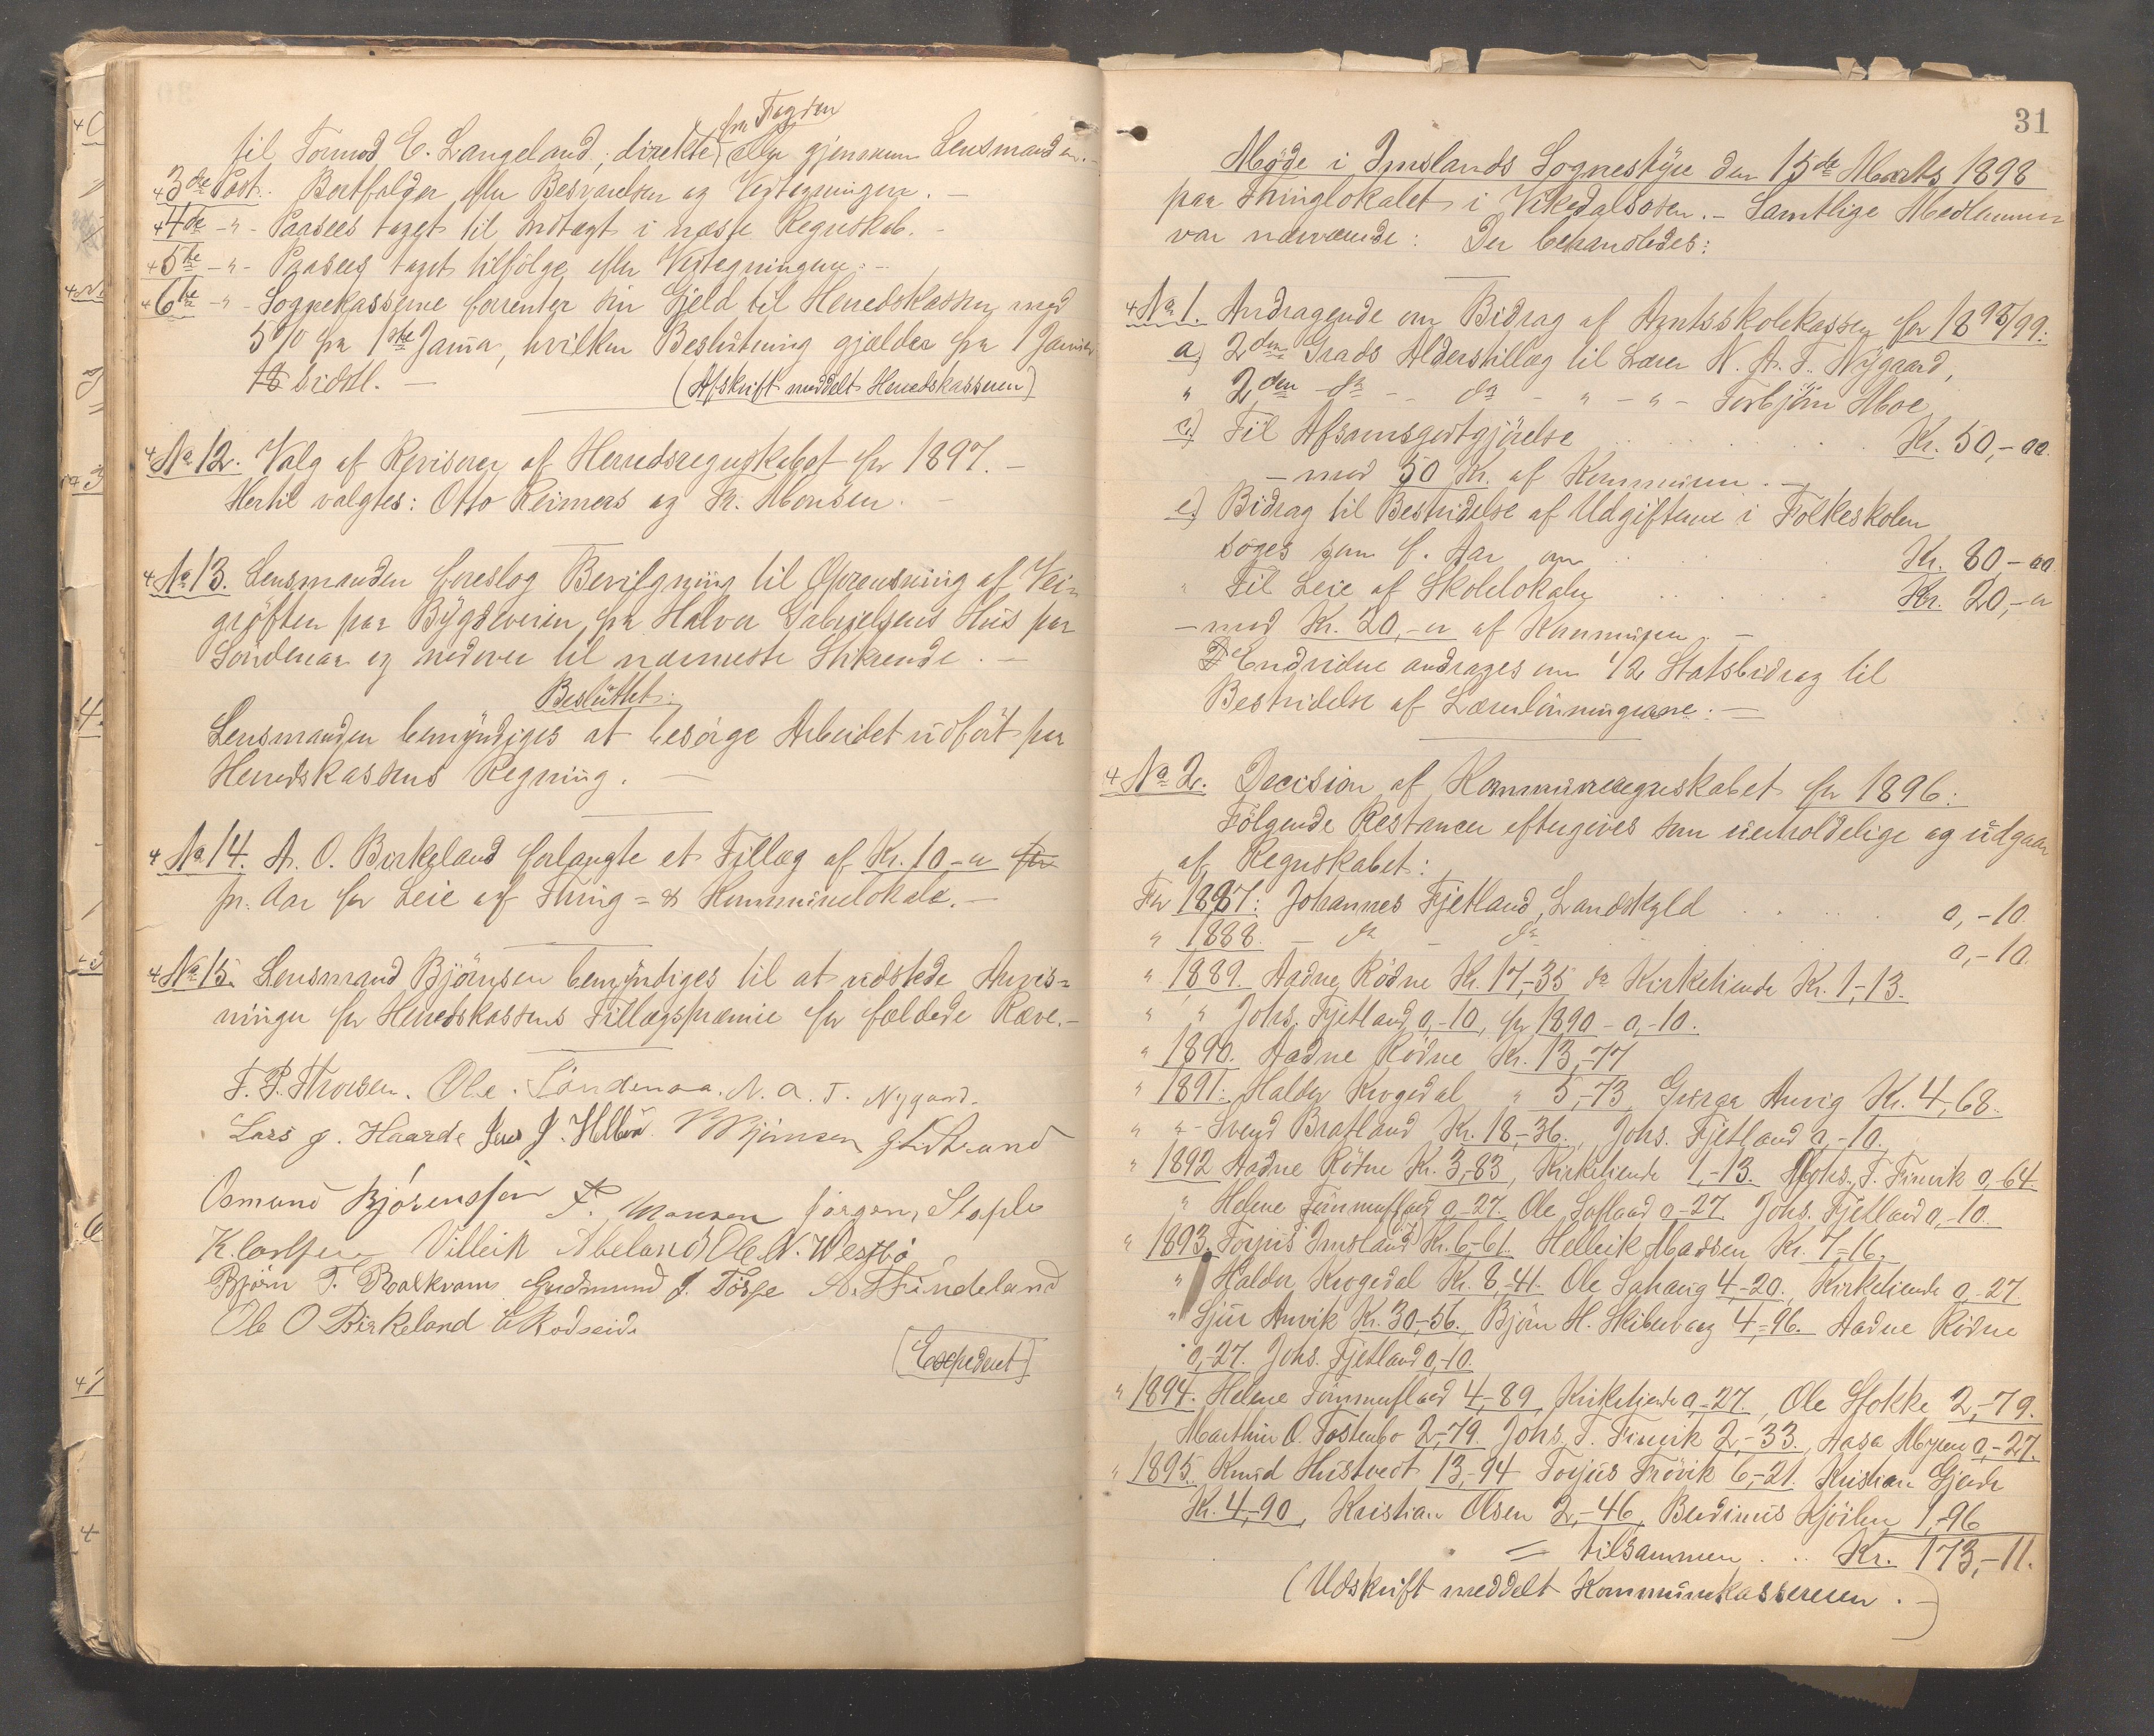 fra Fogden
til Tormod E. Langeland, direkte eller gjennem Lensmanden.-
+3die Post. Bortfalder efter Besvarelsen og Vedtegningen.-
+4de -"- Paasees taget til Indtægt i næste Regnskab.-
+5te -"- Paasees taget tilfølge efter Vedtegningen.-
+6te -"- Sognekasserne forrenter sin Gjeld til Herredskassen med
5% fra 1ste Januar, hvilken Beslutning gjælder fra 1 Januar
sidstl.-
(Afskrift meddelt Herredskasseren)
+No 12. Valg af Revisorer af Herredsregnskabet for 1897.-
Hertil valgtes: Otto Reimers og Fr. Monsen.-
+No 13. Lensmanden foreslog Bevilgning til Oprensning af Vei-
grøften paa Bygdeveien fra Halvor Gabrielsens Hus paa
Søndenaa og nedover til nærmeste Stikrende.-
Besluttet:
Lensmanden bemyndiges at besørge Arbeidet udført for
Herredskassens Regning.-
+No 14. A. O. Birkeland forlangte et Tillæg af Kr. 10-
pr. Aar for Leie af Thing- & Kommunelokale.-
+No 15. Lensmand Bjørnsen bemyndiges til at udstede Anvis-
ninger for Herredskassens Tillægspræmie for fældede Ræve.-
T. P. Thorsen. Ole. Söndenaa. N. A. T. Nygaard.
Lars J. Haarde Jens J. Bjørnsen
Osmund Bjørensson Monsen Jørgen, Stople
K. Carlsen Villeik Abeland Ole N. Westbø
Bjørn T. Gudmund J. Tösse
Ole O Birkeland
[Expederet]
31
Møde i Imslands Sognestyre den 15de Marts 1898
paa Thinglokalet i Vikedalsosen.- Samtlige Medlemmer
var nærværende: Der behandledes:
+No 1. Andragende om Bidrag af Amtsskolekassen for 1898/99.
a.) 2den Grads Alderstillæg til Lærer N. A. T. Nygaard,
" 2den do - do - " - " - Torbjørn Moe
c.) Til Afsavnsgodtgjørelse . . . . Kr. 50,-00.
- mod 50 Kr. af Kommunen.-
e.) Bidrag til Bestridelse af Udgifterne i Folkeskolen
søges som f. Aar om . . . Kr. 80-00
" Til Leie af Skolelokaler . . . . Kr. 20,-
- mod Kr. 20,- af Kommunen.-
Endvidere andrages om 1/2 Statsbidrag til
Bestridelse af Lærerlønningerne.-
+No 2. Decision af Kommuneregnskabet for 1896:
Følgende Restancer eftergives som uerholdelige og udgaar
af Regnskabet:
For 1887: Johannes Fjetland, Landskyld . . . . 0,-10.
" 1888. - do - do . . . . 0,-10.
" 1889. Aadne Rødne Kr. 17,-35 do Kirketiende Kr. 1,-13.
" " Johs. Fjetland 0,-10, for 1890 - 0,-10.
" 1890. Aadne Rødne Kr. 13,-77
" 1891: Haldor Krogedal " 5,-73 Anvig Kr. 4,-68.
" "- Svend Bratland Kr. 18,-36., Johs. Fjetland 0,-10.
" 1892 Aadne Rødne Kr. 3,-83, Kirketiende 1,-13. Johs. T. Finvik 0,-64
" Helene 0,-27. Ole 0-27 Johs. Fjetland 0,-10.
" 1893. Torjus Imsland Kr. 6,-61. Helleik Madsen Kr. 7,-16.
" Haldor Krogedal Kr. 8,-41. Ole 4,-20., Kirketiende 0,-27.
" Sjur Anvik Kr. 30,-56., Bjørn H. 4,-96. Aadne Rødne
0,-27. Johs. Fjetland 0,-10.
" 1894. Helene 4,-89, Kirketiende 0,-27., Ole Stokke 2,-79.
Marthin O. 2,-79. Johs. T. Finvik 2,-33., Aasa 0,-27.
" 1895. Knud Hustvedt 13,-94 Torjus 6,-21. Kristian
Kr. 4,-90, Kristian Olsen 2,-46, 1,-96
= tilsammen . . Kr. 173,-11.
(Udskrift meddelt Kommunekassereren.-)